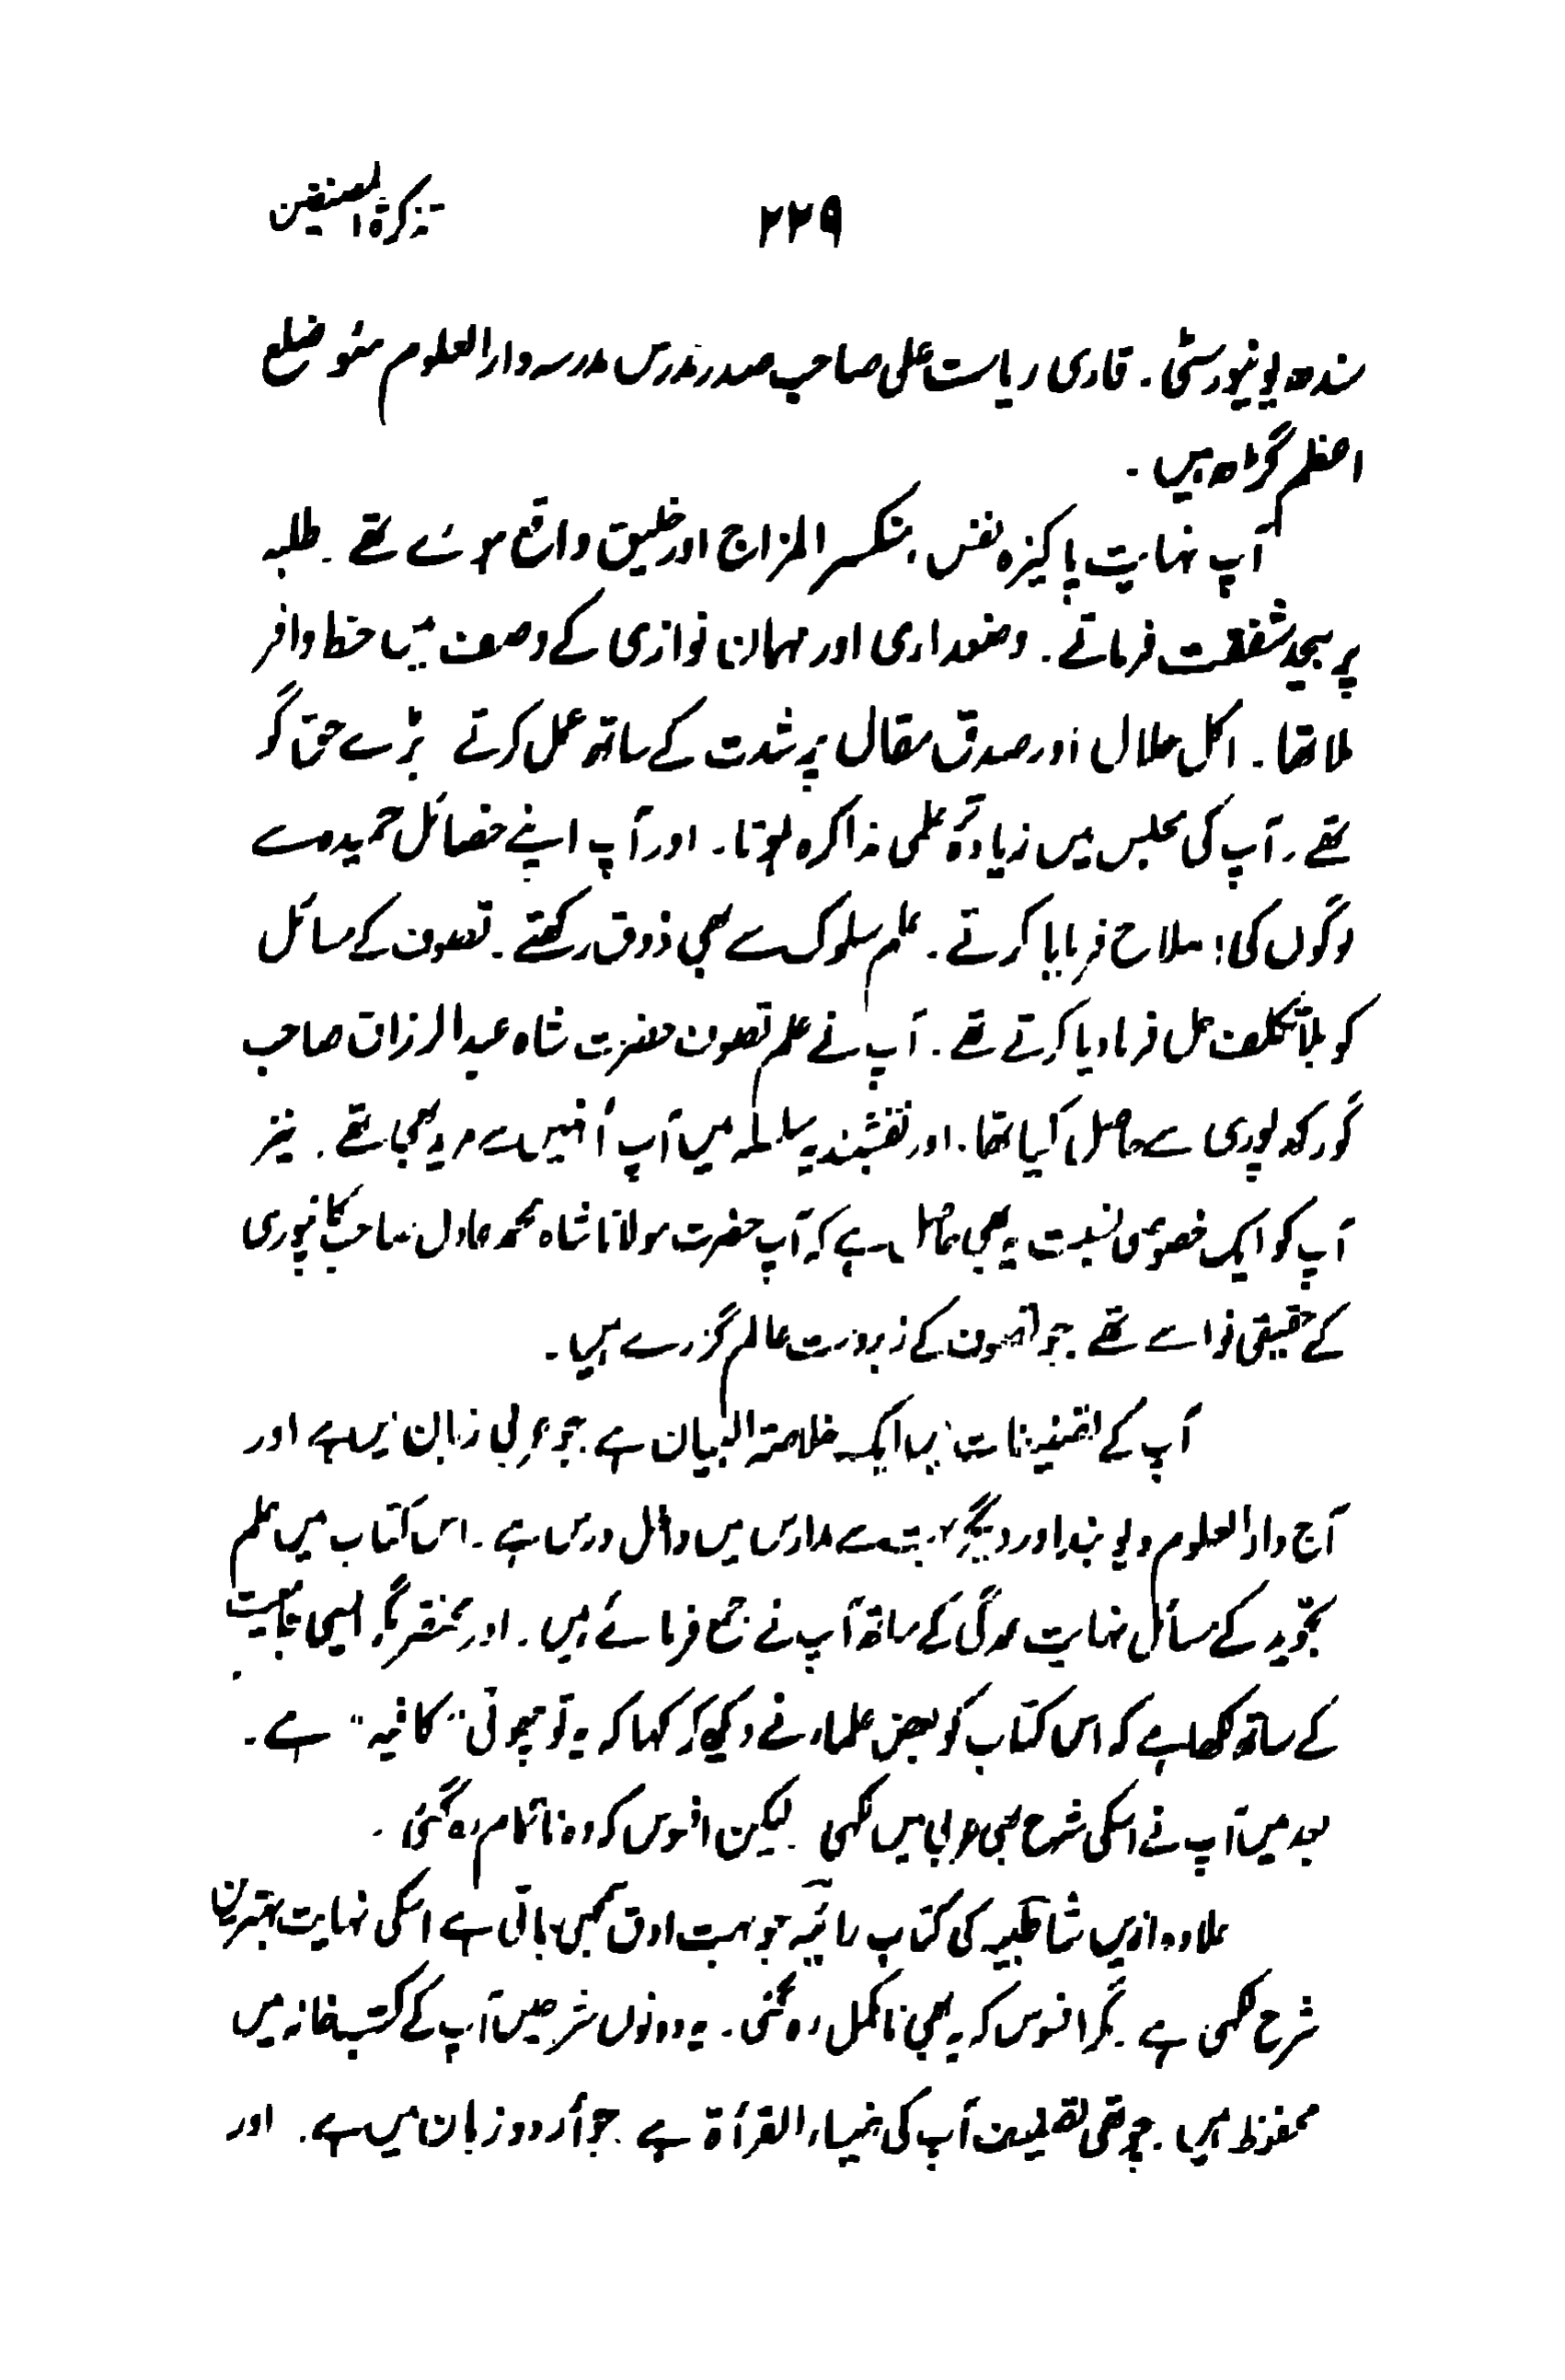 تذکرۃ المصنفین
۲۲۹
سندھ یونیورسٹی۔ قاری ریاست علی صاحب صدر مدرس مدرسہ دارالعلوم مئو ضلع
اعظم گڑھ ہیں۔
آپ نہایت پاکیزہ نفس، منکسر المزاج اور خلیق واقع ہوئے تھے۔ طلبہ
پر بیحد شفقت فرماتے۔ وضعداری اور مہمان نوازی کے وصف میں حظ وافر
ملا تھا۔ اکل حلال اور صدق مقال پر شدت کے ساتھ عمل کرتے بڑے حق گو
تھے۔ آپ کی مجلس میں زیادہ علمی مذاکرہ ہوتا۔ اور آپ اپنے خصائل حمیدہ سے
لوگوں کی اصلاح فرمایا کرتے۔ علم سلوک سے بھی ذوق رکھتے۔ تصوف کے مسائل
کو بلا تکلف حل فرما دیا کرتے تھے۔ آپ نے علم تصوف حضرت شاہ عبدالرزاق صاحب
گورکھپوری سے حاصل کیا تھا۔ اور نقشبندیہ سلسلہ میں آپ اُنہیں سے مرید بھی تھے۔ نیز
آپ کو ایک خصوصی نسبت یہ بھی حاصل ہے کہ آپ حضرت مولانا شاہ محمد عادل صاحب کانپوری
کے حقیقی نواسے تھے۔ جو تصوف کے زبردست عالم گزرے ہیں۔
آپ کے تصنیفات میں ایک خلاصۃ البیان ہے جو عربی زبان میں ہے اور
آج دارالعلوم دیوبند اور دیگر بہت سے مدارس میں داخل درس ہے۔ اس کتاب میں علم
تجوید کے مسائل نہایت عمدگی کے ساتھ آپ نے جمع فرمائے ہیں۔ اور مختصر مگر ایسی جامعیت
کے ساتھ لکھا ہے کہ اس کتاب کو بعض علماء نے دیکھ کر کہا کہ یہ تو چھوٹی "کافیہ" ہے۔
بعد میں آپ نے اسکی شرح بھی عربی میں لکھی۔ لیکن افسوس کہ وہ ناتمام رہ گئی۔
علاوہ ازیں شاطبیہ کی کتاب رائیہ جو بہت ادق سمجھی جاتی ہے اسکی نہایت بہترین
شرح لکھی ہے۔ مگر افسوس کہ یہ بھی نامکمل رہ گئی۔ یہ دونوں شرحیں آپ کے کتب خانہ میں
محفوظ ہیں۔ چوتھی تصنیف آپ کی ضیاء القرأۃ ہے جو اُردو زبان میں ہے۔ اور